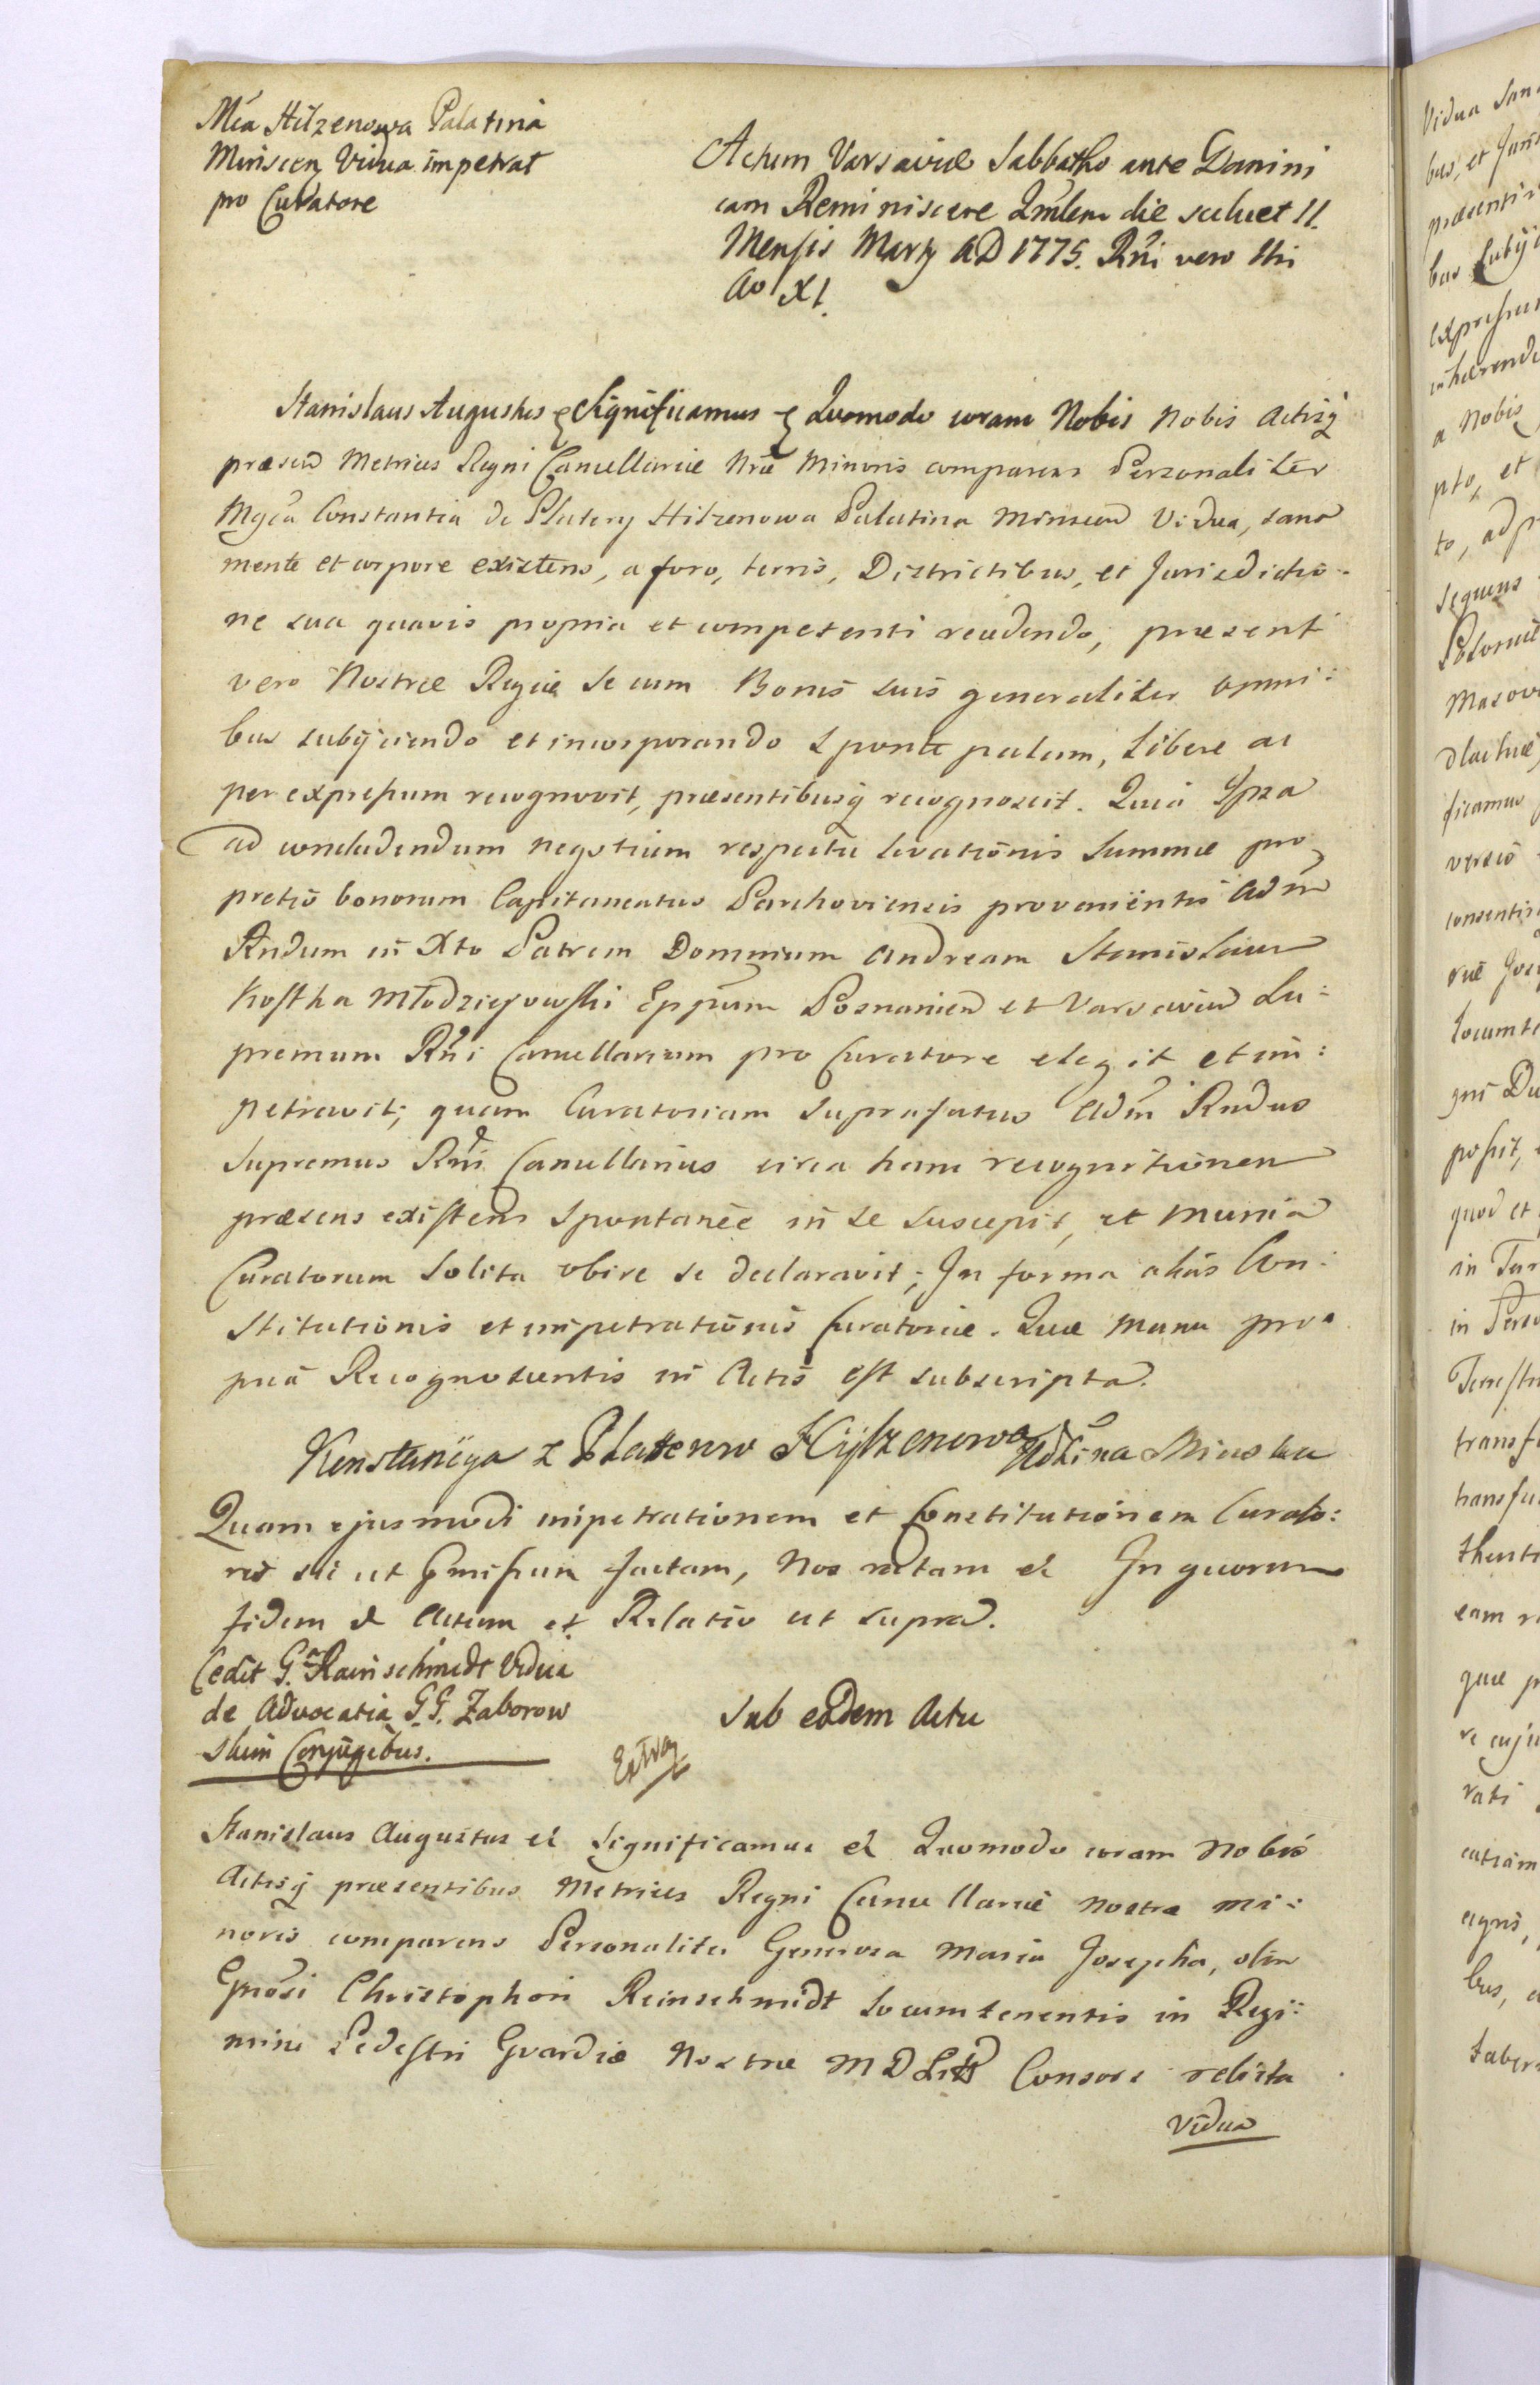 Mca Hilzenowa Palatina
Minscen Vidua impetrat
pro Curatore
Actum Varsaviæ Sabbatho ante Domini
cam Reminiscere Qmlem die scilicet 11.
Mensis Martÿ AD 1775. Rni vero Nri
Ao XI.
Stanislaus Augustus & Significamus & Quomodo coram Nobis Nobis Actisq
præsen Metrices Regni Cancellariæ Nræ Minoris comparens Personaliter
Mgca Constantia de Platery Hilzenowa Palatina Minscen Vidua, sana
mente et corpore existens, a foro, terris, Districtibus, et Jurisdictio-
ne sua quavis propria et competenti recedendo, præsenti
vero Nostræ Regiæ se cum Bonis suis generaliter omni:
bus subijciendo et incorporando sponte palam, libere ac
per expressum recognovit, præsentibusq recognoscit. Quia Ipsa
ad concludendum negotium respectu levationis Summæ pro
pretio bonorum Capitaneatus Parchoviensis provenientis Adm
Rndum in Xto Patrem Dominum Andream Stanislaum
Kostka Młodzieiowski Eppum Posnanien et Varsavien Su:
premum Rni Cancellarium pro Curatore elegit et im:
petravit; quam Curatoriam suprafatus Adm Rndus
Supremus Rni Cancellarius circa hanc recognitionem
præsens existens spontanee in se suscepit, et munia
Curatorum solita obire se declaravit; In forma alias Con:
stitutionis et impetrationis Curatoriæ. Quæ manu pro
pria Recognoscentis in Actis est subscripta.
Konstancÿa z Platerow Hÿlzenowa Wdzina Minska
Quam ejusmodi impetrationem et Constitutionem Curato:
ris sui ut Pmissum factam, Nos ratam & In quorum
fidem & Actum et Relatio ut supra.
Cedit G. Rainschmidt Vidua
de Advocatia G.G. Zaborow
skim Conjugibus.
Sub eodem Actu
Extrad
Stanislaus Augustus & Significamus & Quomodo coram Nobis
Actisq præsentibus Metrices Regni Cancellariæ Nostræ Mi:
noris comparens Personaliter Generosa Maria Josepha, olim
Gnosi Christophori Reinschmidt Locumtenentis in Regi:
mine Pedestri Gvardiæ Nostræ M D Litt Consors relicta
Vidua